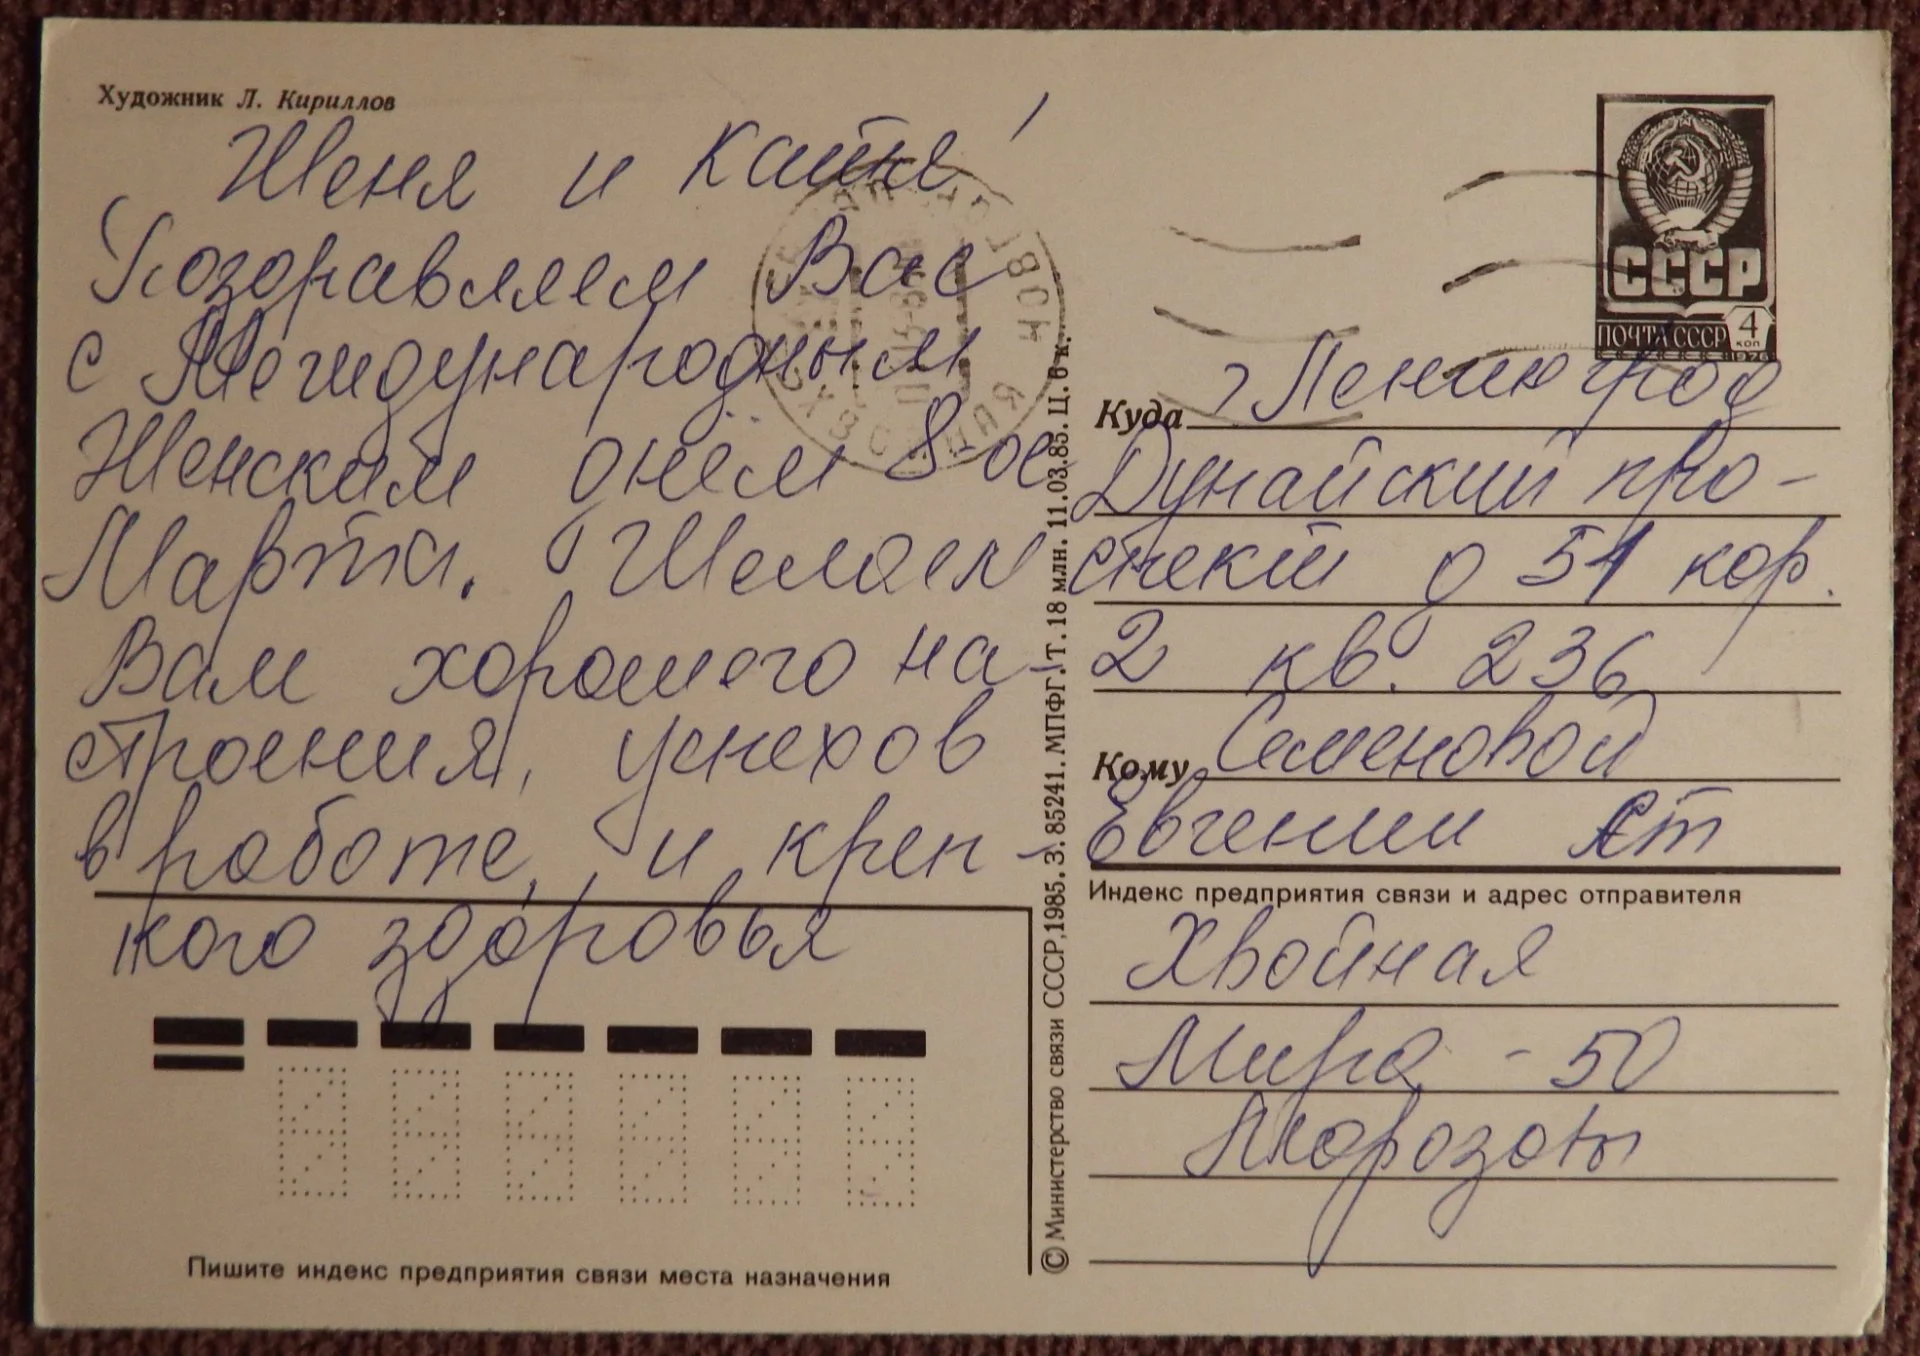 Художник Л. Кириллов
Женя и Катя!
Поздравляем Вас
с Международным
Женским днём 8-ое
Марта. Желаем
Вам хорошего на-
строения, успехов
в работе, и креп-
кого здоровья
Пишите индекс предприятия связи места назначения
© Министерство связи СССР, 1985. З. 85241. МПФГ. Т. 18 млн. 11.03.85. Ц. 6 к.
СССР
ПОЧТА СССР 4 коп
1976
Куда г Ленинград
Дунайский про-
спект д 51 кор.
2 кв. 236
Кому Семеновой
Евгении
Индекс предприятия связи и адрес отправителя
Хвойная
Мира - 50
Морозовы